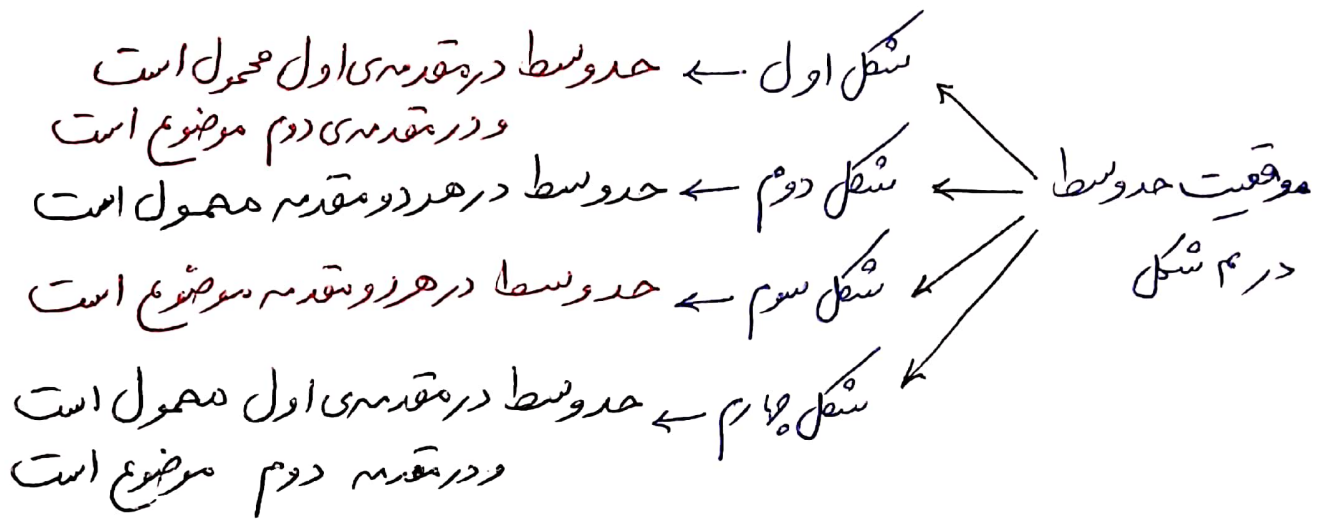 موقعیت حدوسط
در ۴ شکل
شکل اول ← حدوسط در مقدمه‌ی اول محمول است
و در مقدمه‌ی دوم موضوع است
شکل دوم ← حدوسط در هر دو مقدمه محمول است
شکل سوم ← حدوسط در هر دو مقدمه موضوع است
شکل چهارم ← حدوسط در مقدمه‌ی اول محمول است
و در مقدمه دوم موضوع است